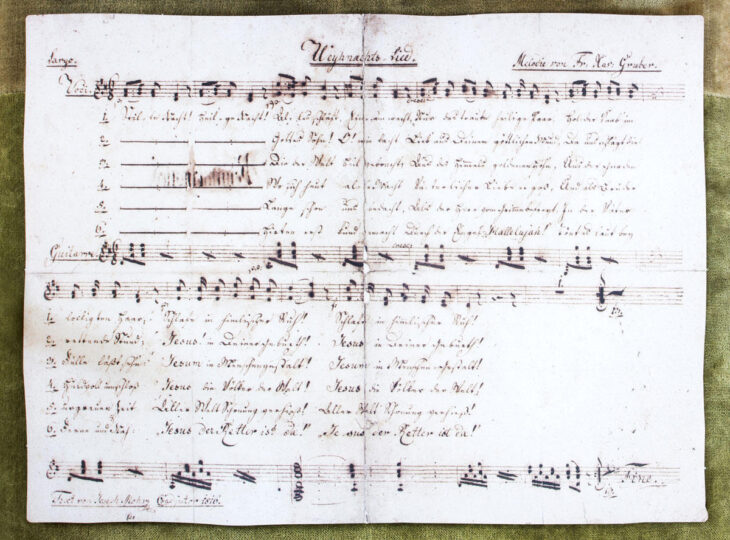 Weyhnachts-Lied.
Largo. Melodie von Fr. Xav. Gruber.
Voce
1. Stille Nacht! Heilige Nacht! Alles schläft; Einsam wacht, Nur das traute heilige Paar. Holder Knab im
2. Gottes Sohn! O! wie lacht Lieb' aus Deinem göttlichen Mund, Da uns schlägt die
3. Die der Welt Heil gebracht, Aus des Himmels goldenen Höhn, Aus der Gnaden
4. Wo sich heut alle Macht Väterlicher Liebe ergoß, Und als Bruder
5. Lange schon uns bedacht, Als der Herr vom Grimme befreyt, In der Väter
6. Hirten erst kundgemacht Durch der Engel "Hallelujah!" Tönt es laut bey
Guitarre.
1. lockigten Haar; Schlafe in himmlischer Ruh! Schlafe in himmlischer Ruh!
2. rettende Stund; Jesus! in Deiner Geburth! Jesus in Deiner Geburth!
3. Fülle läßt seh'n Jesum in Menschengestalt! Jesum in Menschengestalt!
4. Huldvoll umschloß Jesus die Völker der Welt! Jesus die Völker der Welt!
5. urgrauer Zeit Aller Welt Schonung verhieß! Aller Welt Schonung verhieß!
6. Ferne und Nah: "Jesus der Retter ist da!" "Jesus der Retter ist da!"
Fine.
Text von Joseph Mohr Coadjutor 1816.